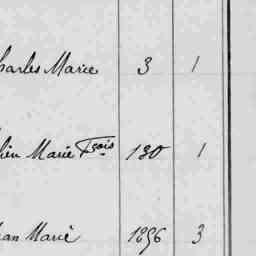 harles Marie 3 1
hien Marie Fçois 130 1
ean Marie 1896 3